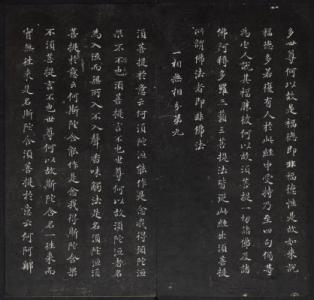 多世尊何以故是福德即非福德性是故如來說
福德多若復有人於此經中受持乃至四句偈等
為他人說其福勝彼何以故須菩提一切諸佛及諸
佛阿耨多羅三藐三菩提法皆從此經出須菩提
所謂佛法者即非佛法
一相無相分第九
須菩提於意云何須陀洹能作是念我得須陀洹
果不須菩提言不也世尊何以故須陀洹者名
為入流而無所入不入聲香味觸法是名須陀洹須
菩提於意云何斯陀含能作是念我得斯陀含果
不須菩提言不也世尊何以故斯陀含名一往來而
實無往來是名斯陀含須菩提於意云何阿那